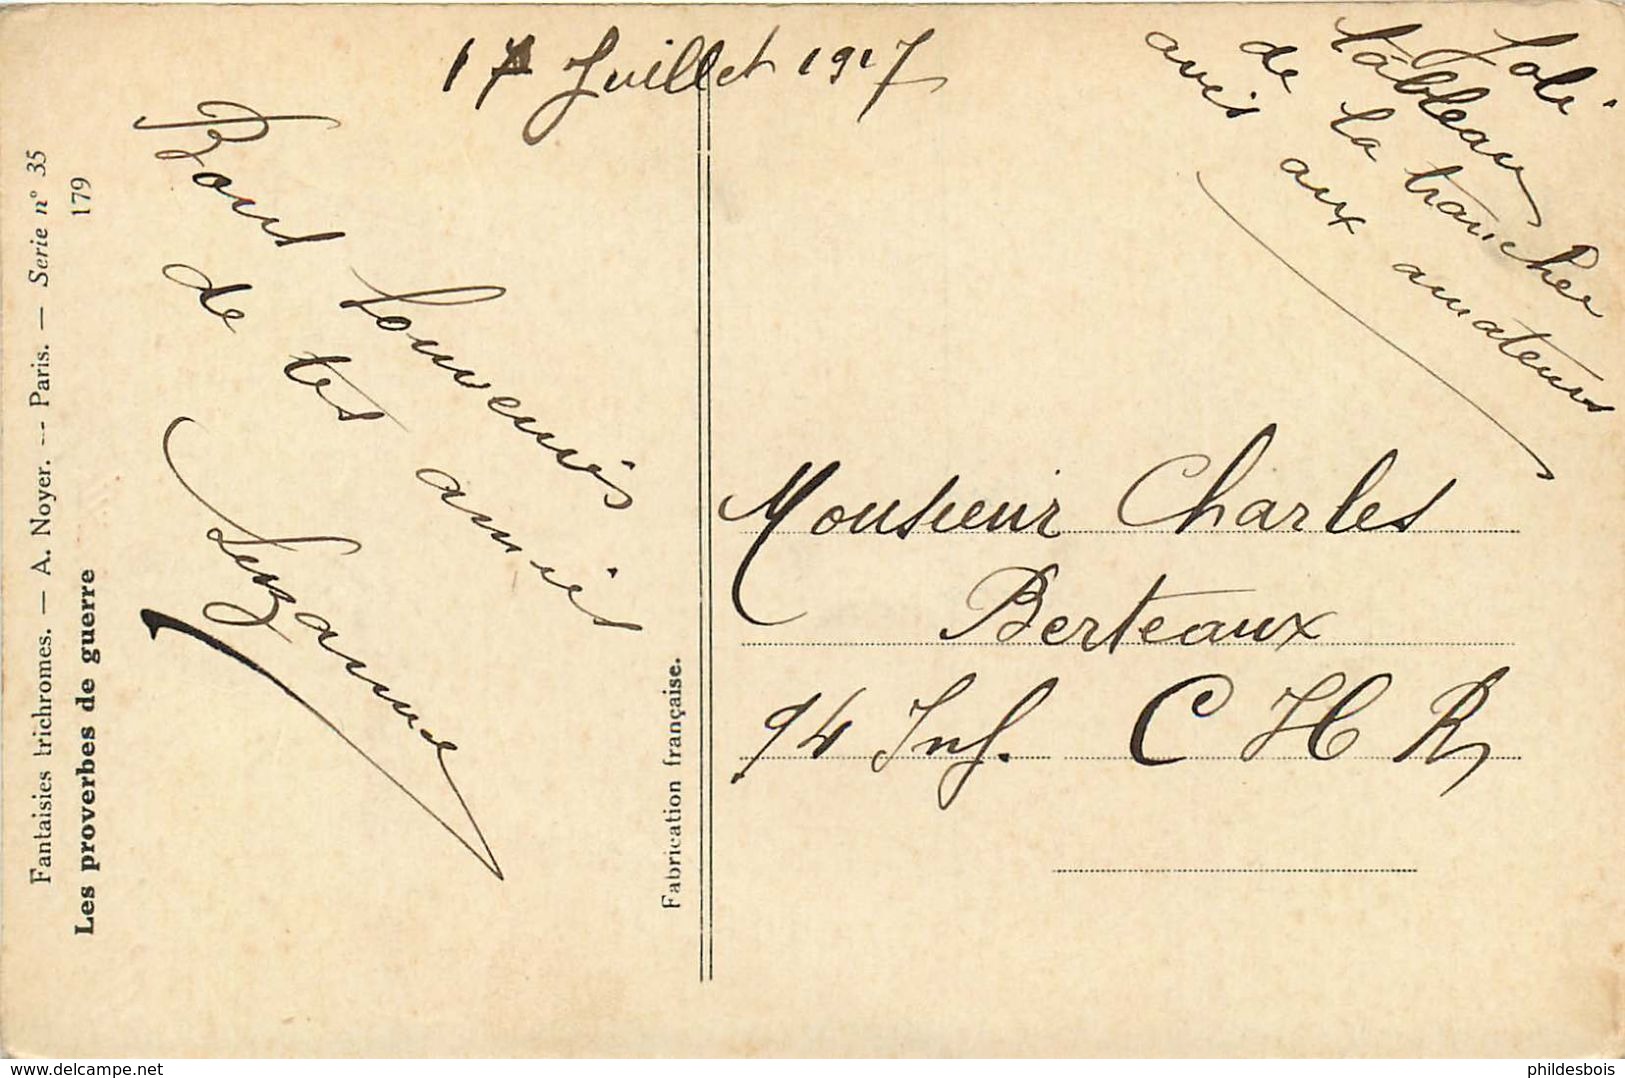 17 Juillet 1917
Joli
tableau
de la tranchée
avis aux amateurs
Bons souvenirs
de tes amies
Suzanne
Monsieur Charles
Berteaux
94 Inf. C H R
Fantaisies trichromes. — A. Noyer. -- Paris. — Serie n° 35
Les proverbes de guerre 179
Fabrication française.
delcampe.net
phildesbois